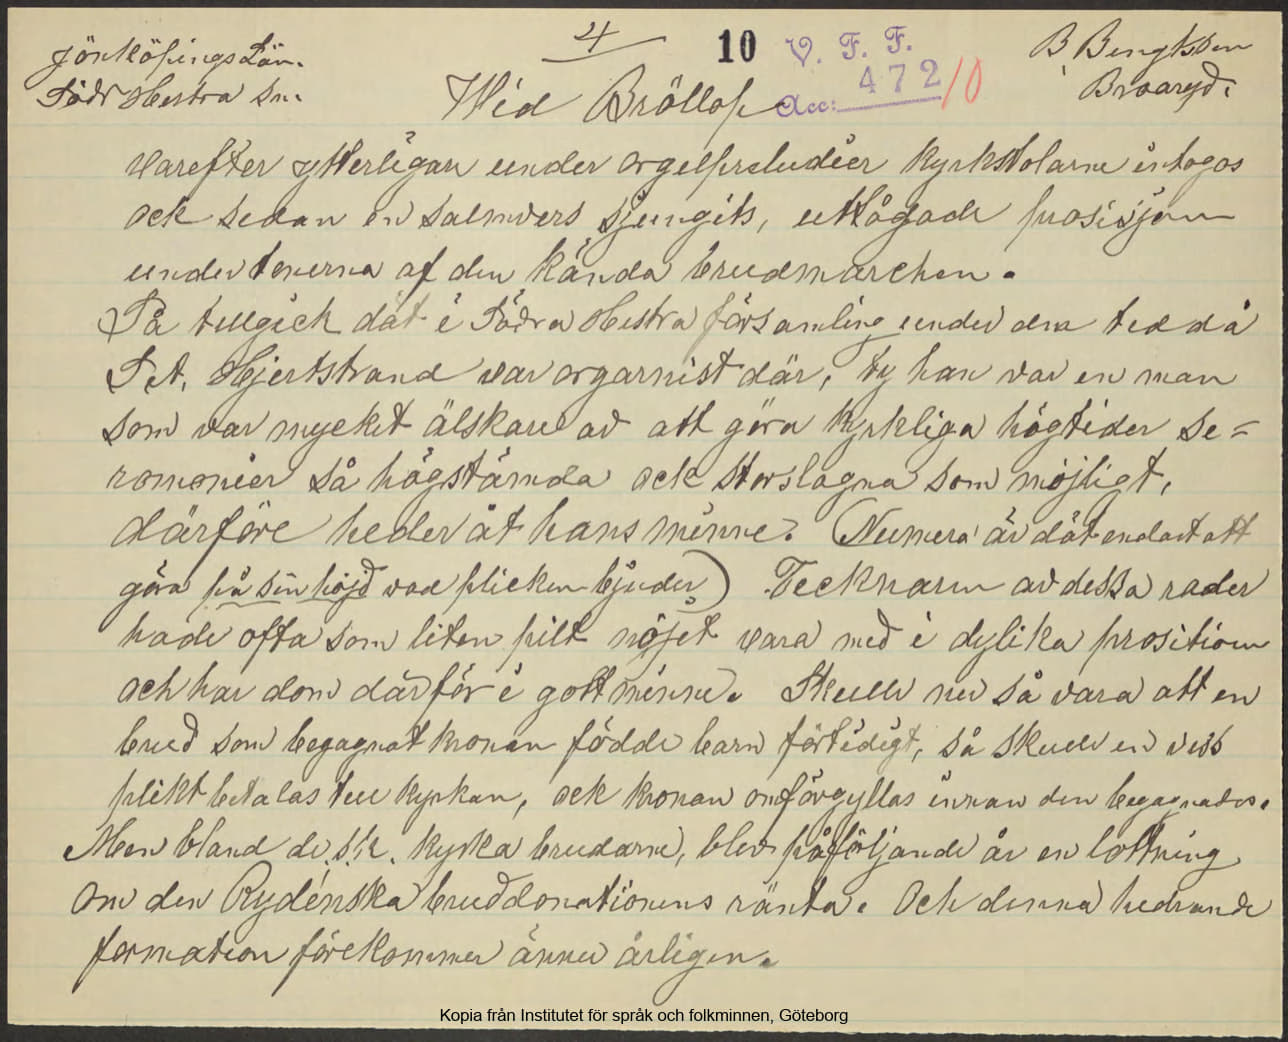 Jönköpings Län.
Södr Hestra Sn.
4
10
V. F. F.
Acc: 472/10
B Bengtsson
Broaryd.
Wid Bröllop
varefter ytterligare under orgelpreludier kyrkstolarne intogos
ock sedan en salmvers sjungits, uttågade prosisjonen
under tonerna af den kända brudmarchen.
Så tillgick dät i Södra Hestra församling under den tid då
S. A. Hjertstrand var orgarnist där, ty han var en man
som var mycket älskare av att göra kyrkliga högtider se=
romonier så högstämda ock storslagna som möjligt,
därföre heder åt hans minne. (Numera är dät endast att
göra på sin höjd vad plickten bjuder) Tecknaren av dessa rader
hade ofta som liten pilt nöjet vara med i dylika prositioner
och har dom därför i gott minne. Skulle nu så vara att en
brud som begagnat kronan födde barn förtidigt, så skulle en viss
plikt betalas till kyrkan, ock kronan omförgyllas innan den begagnades.
Men bland de s.k. kyska brudarne, blev påföljande år en lottning
om den Rydénska bruddonationens ränta. Och denna hedrande
formation förekommer ännu årligen.
Kopia från Institutet för språk och folkminnen, Göteborg